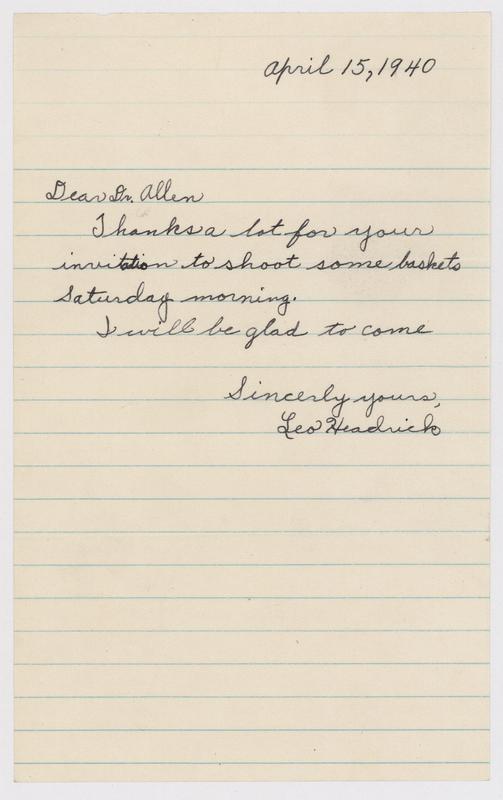 April 15, 1940
Dear Dr. Allen
Thanks a lot for your
invitation to shoot some baskets
Saturday morning.
I will be glad to come
Sincerly yours,
Leo Headrick